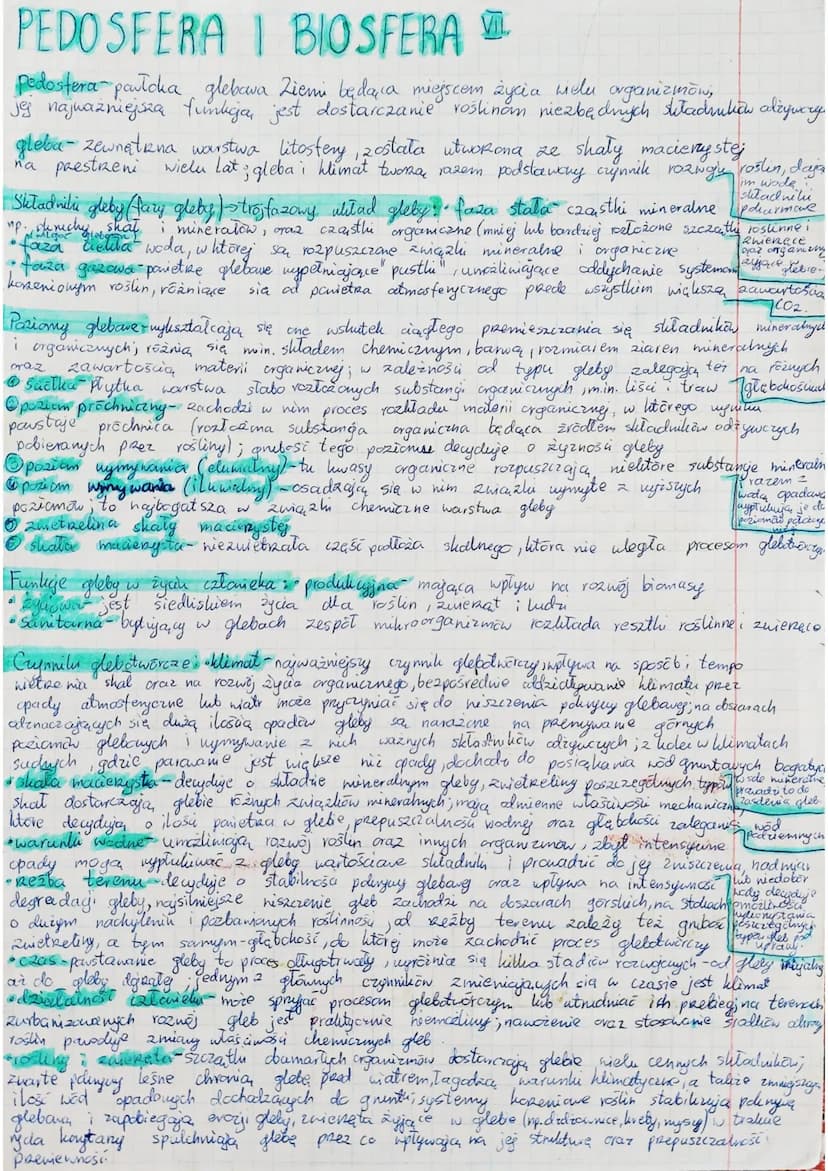 PEDOSFERA I BIOSFERA VII
pedosfera - powłoka glebowa Ziemi będąca miejscem życia wielu organizmów,
jej najważniejszą funkcją jest dostarczanie roślinom niezbędnych składników odżywczych
gleba - zewnętrzna warstwa litosfery, została utworzona ze skały macierzystej
na przestrzeni wielu lat; gleba i klimat tworzą razem podstawowy czynnik rozwoju roślin, dają
im wodę i
składniki
pokarmowe
Składniki gleby (fazy gleby) → trójfazowy układ gleby: • faza stała - cząstki mineralne
np. okruchy skał i minerałów, oraz cząstki organiczne (mniej lub bardziej rozłożone szczątki roślinne i
zwierzęce
oraz organizmy
żyjące w glebie
• faza ciekła - woda, w której są rozpuszczone związki mineralne i organiczne
• faza gazowa - powietrze glebowe wypełniające "pustki", umożliwiające oddychanie systemom
korzeniowym roślin, różniące się od powietrza atmosferycznego przede wszystkim większą zawartością
CO2.
Poziomy glebowe - wykształcają się one wskutek ciągłego przemieszczania się składników mineralnych
i organicznych; różnią się min. składem chemicznym, barwą, rozmiarem ziaren mineralnych
oraz zawartością materii organicznej; w zależności od typu gleby zalegają też na różnych
głębokościach
① ściółka - płytka warstwa słabo rozłożonych substancji organicznych, min. liści i traw
② poziom próchniczny - zachodzi w nim proces rozkładu materii organicznej, w którego wyniku
powstaje próchnica (rozłożona substancja organiczna będąca źródłem składników odżywczych
pobieranych przez rośliny); grubość tego poziomu decyduje o żyzności gleby
③ poziom wymywania (eluwialny) - tu kwasy organiczne rozpuszczają niektóre substancje mineralne
i razem z
wodą opadową
wypłukują je do
poziomów położonych
④ poziom wmywania (iluwialny) - osadzają się w nim związki wymyte z wyższych
poziomów, to najbogatsza w związki chemiczne warstwa gleby
⑤ zwietrzelina skały macierzystej
⑥ skała macierzysta - niezwietrzała część podłoża skalnego, która nie uległa procesom glebotwórczym
Funkcje gleby w życiu człowieka: • produkcyjna - mająca wpływ na rozwój biomasy
• życiowa - jest siedliskiem życia dla roślin, zwierząt i ludzi
• sanitarna - bytujący w glebach zespół mikroorganizmów rozkłada resztki roślinne i zwierzęce
Czynniki glebotwórcze: • klimat - najważniejszy czynnik glebotwórczy, wpływa na sposób i tempo
wietrzenia skał oraz na rozwój życia organicznego, bezpośrednie oddziaływanie klimatu przez
opady atmosferyczne lub wiatr może przyczyniać się do niszczenia pokrywy glebowej; na obszarach
odznaczających się dużą ilością opadów gleby są narażone na przemywanie górnych
poziomów glebowych i wymywanie z nich ważnych składników odżywczych; z kolei w klimatach
suchych, gdzie parowanie jest większe niż opady, dochodzi do podsiąkania wód gruntowych bogatych
w sole mineralne
prowadzi to do
zasolenia gleb
• skała macierzysta - decyduje o składzie mineralnym gleby, zwietrzeliny poszczególnych typów
skał dostarczają glebie różnych związków mineralnych; mają odmienne właściwości mechaniczne
które decydują o ilości powietrza w glebie, przepuszczalności wodnej oraz głębokości zalegania wód
podziemnych
• warunki wodne - umożliwiają rozwój roślin oraz innych organizmów, zbyt intensywne
opady mogą wypłukiwać z gleby wartościowe składniki i prowadzić do jej zniszczenia, nadmiar
lub niedobór
wody decyduje
o możliwości
wykorzystania
poszczególnych
typów gleb pod
uprawę
• rzeźba terenu - decyduje o stabilności pokrywy glebowej oraz wpływa na intensywność
degradacji gleby, najsilniejsze niszczenie gleb zachodzi na obszarach górskich, na stokach
o dużym nachyleniu i pozbawionych roślinności, od rzeźby terenu zależy też grubość
zwietrzeliny, a tym samym - głębokość, do której może zachodzić proces glebotwórczy
• czas - powstawanie gleby to proces długotrwały, wyróżnia się kilka stadiów rozwojowych - od gleby inicjalnej
aż do gleby dojrzałej, jednym z głównych czynników zmieniających się w czasie jest klimat
• działalność człowieka - może sprzyjać procesom glebotwórczym lub utrudniać ich przebieg; na terenach
zurbanizowanych rozwój gleb jest praktycznie niemożliwy; nawożenie oraz stosowanie środków ochrony
roślin powoduje zmiany właściwości chemicznych gleb
• rośliny i zwierzęta - szczątki obumarłych organizmów dostarczają glebie wielu cennych składników;
zwarte pokrywy leśne chronią glebę przed wiatrem, łagodzą warunki klimatyczne, a także zmniejszają
ilość wód opadowych dochodzących do gruntu; systemy korzeniowe roślin stabilizują pokrywę
glebową i zapobiegają erozji gleby, zwierzęta żyjące w glebie (np. dżdżownice, krety, myszy) w trakcie
rycia korytarzy spulchniają glebę przez co wpływają na jej strukturę oraz przepuszczalność i
przewiewność.